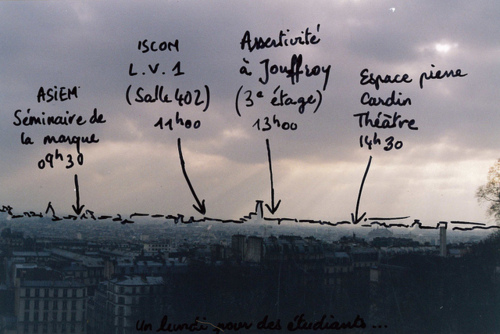 ASIEM
Séminaire de
la marque
09h30
ISCOM
L.V.1
(Salle 402)
11h00
Assertivité
à Jouffroy
(3e étage)
13h00
Espace pierre
Cardin
Théâtre
14h30
Un lundi pour des étudiants...